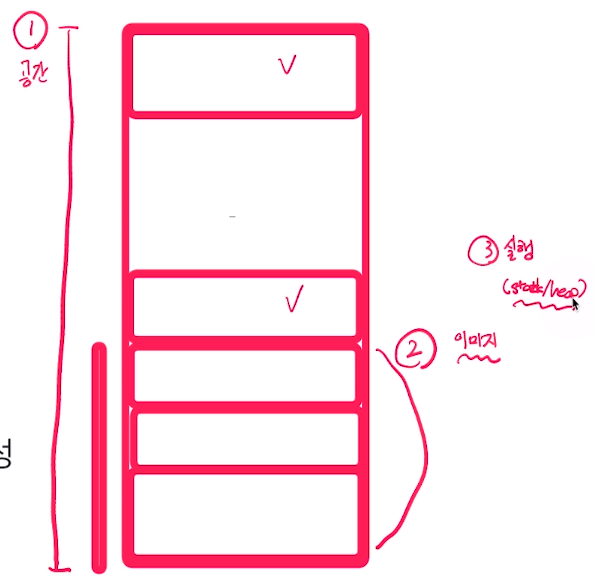 ①
공간
③ 실행
(stack/heap)
② 이미지
성